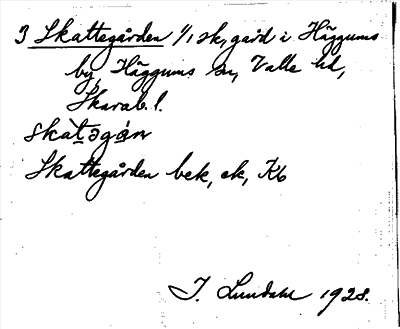 3 Skattegården 1/1 sk, gård i Häggums
by, Häggums sn, Valle hd,
Skarab. l.
skatəgán
Skattegården bek, ek, Kb
I. Lundahl 1928.